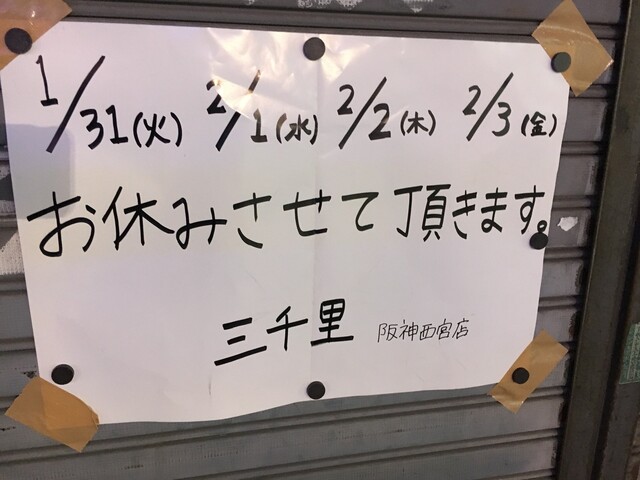 1/31(火) 2/1(水) 2/2(木) 2/3(金)
お休みさせて頂きます。
三千里 阪神西宮店